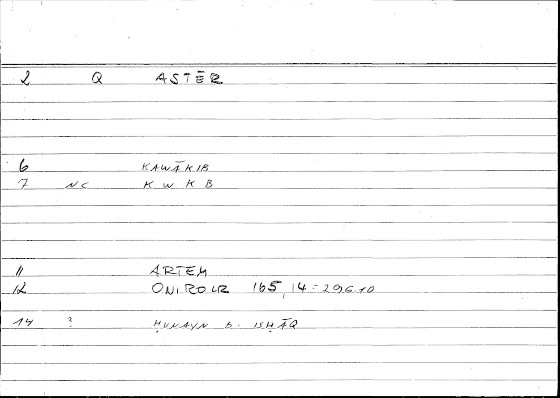 2 Q ASTĒR
6 KAWĀKIB
7 NC K W K B
11 ARTEM
12 ONIROCR 165,14 = 296.10
14 ? ḤUNAYN b. ISḤĀQ